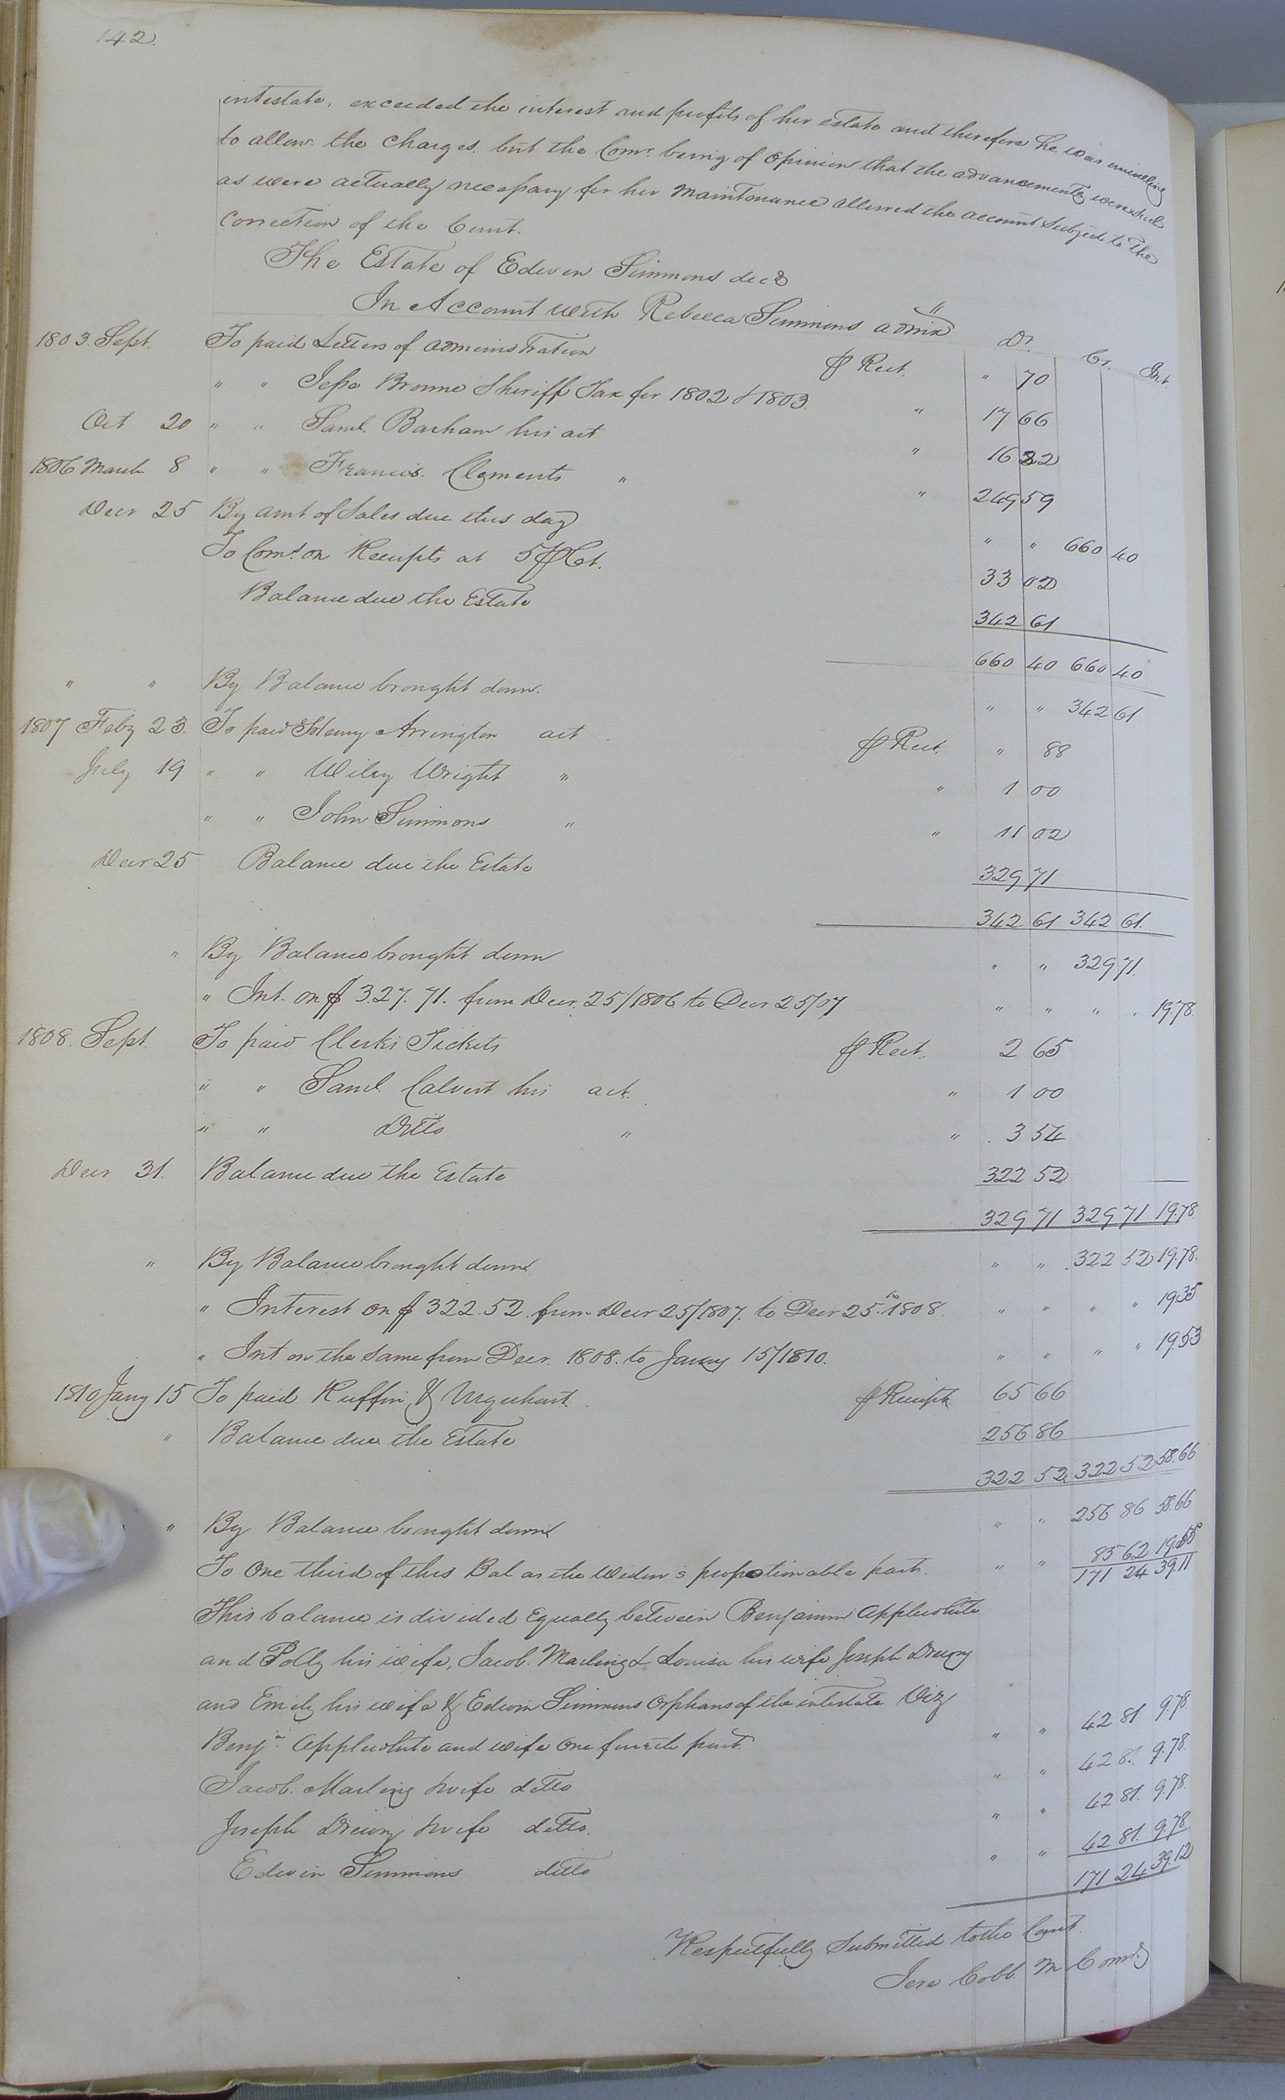 142.
intestate, exceeded the interest and profits of her estate and therefore he was unwilling
to allow the charges, but the Comr. being of opinion that the advancements were such
as were actually necessary for her maintenance allowed the account subject to the
correction of the Court.
The Estate of Edwin Simmons decd
In Account with Rebecca Simmons admx Dr. Cr. Int.
1803. Sept. To paid Letters of administration ⅌ Rect. " 70
" " Jesse Browne Sheriff Tax for 1802 & 1803 " 17 66
Oct 20 " " Saml. Barham his act " 16 22
1806 March 8 " " Francis Clements " " 249 59
Decr 25 By amt of Sales due this day " " 660 40
To Coms. on Receipts at 5 ⅌ Ct. 33 02
Balance due the Estate 342 61
660 40 660 40
" " By Balance brought down. " " 342 61
1807 Feby 23. To paid Henry Arrington act ⅌ Rect. " 88
July 19 " " Wiley Wright " " 1 00
" " John Simmons " " 11 02
Decr 25 Balance due the Estate 329 71
342 61 342 61.
" By Balance brought down " " 329 71.
" Int. on $ 327. 71. from Decr. 25/1806 to Decr 25/07 " " " . 19.78.
1808. Sept. To paid Clerks Tickets ⅌ Rect. 2 65
" " Saml Calvert his act. " 1 00
" " Ditto " " 3 54
Decr 31. Balance due the Estate 322 52
329 71 329 71 19.78
" By Balance brought down " " 322 52 19.78.
" Interest on $ 322. 52. from Decr 25/1807. to Decr 25. 1808. " " " " 19.35
" Int on the same from Decr. 1808. to Jany 15/1810. " " " " 19.53
1810 Jany 15 To paid Ruffin & Urquhart. ⅌ Receipt 65 66
" Balance due the Estate 256 86
322 52 322 52 58.66
" By Balance brought down " " 256 86 58.66
To One third of this Bal as the Widow's propotionable part. " " 85 62 19.55
171 24 39.11
This balance is divided Equally between Benjamin Applewhite
and Polly his wife, Jacob. Marling & Louisa his wife Joseph Drewry
and Emily his wife & Edwin Simmons Orphans of the intestate Viz
Benja. Applewhite and wife one fourth part. " " 42 81 9.78
Jacob. Marling & wife ditto " " 42 81. 9.78.
Joseph Drewry & wife ditto. " " 42 81. 9.78.
Edwin Simmons ditto " " 42 81. 9.78
171 24 39.12
Respectfully Submitted to the Court.
Jere Cobb M Comr.